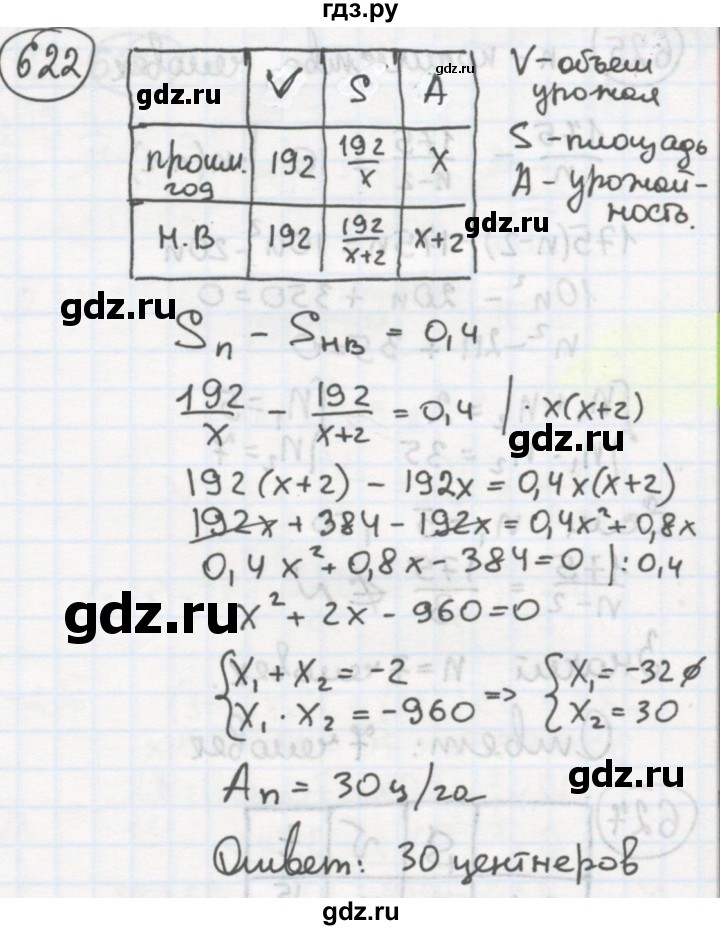 гдз.ру
622
V S A
прошл. год 192 192/x x
Н.В 192 192/x+2 x+2
V - объём
урожая
S - площадь
A - урожай-
ность.
gdz.ru
gdz.ru
gdz.ru
Sп - Sнв = 0,4
192/x - 192/x+2 = 0,4 | · x(x+2)
gdz.ru
192(x+2) - 192x = 0,4x(x+2)
192x + 384 - 192x = 0,4x² + 0,8x
0,4x² + 0,8x - 384 = 0 | : 0,4
gdz.ru
x² + 2x - 960 = 0
{x₁ + x₂ = -2 => {x₁ = -32 ∅
{x₁ · x₂ = -960 {x₂ = 30
gdz.ru
Aп = 30 ц/га
Ответ: 30 центнеров
gdz.ru